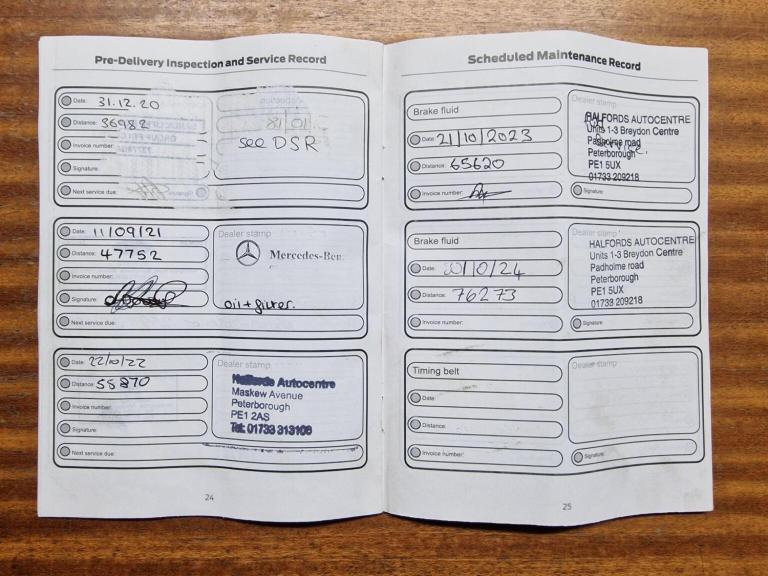 Pre-Delivery Inspection and Service Record
Date: 31.12.20
Distance: 36982
Invoice number:
Signature:
Next service due:
see DSR
Date: 11/09/21
Distance: 47752
Invoice number:
Signature:
Next service due:
Dealer stamp
Mercedes-Ben
oil + filter.
Date: 22/10/22
Distance: 55870
Invoice number:
Signature:
Next service due:
Dealer stamp
Halfords Autocentre
Maskew Avenue
Peterborough
PE1 2AS
Tel: 01733 313108
24
Scheduled Maintenance Record
Brake fluid
Date: 21/10/2023
Distance: 65620
Invoice number:
Dealer stamp
HALFORDS AUTOCENTRE
Units 1-3 Breydon Centre
Padholme road
Peterborough
PE1 5UX
01733 209218
Signature:
Brake fluid
Date: /10/24
Distance: 76273
Invoice number:
Dealer stamp
HALFORDS AUTOCENTRE
Units 1-3 Breydon Centre
Padholme road
Peterborough
PE1 5UX
01733 209218
Signature:
Timing belt
Date:
Distance:
Invoice number:
Dealer stamp
Signature:
25